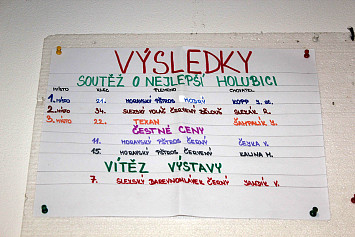 VÝSLEDKY
SOUTĚŽ O NEJLEPŠÍ HOLUBICI
MÍSTO KLEC PLEMENO CHOVATEL
1. MÍSTO 21. MORAVSKÝ PŠTROS MODRÝ KOPP J. ml.
2. MÍSTO 34. SLEZSKÝ VOLÁČ ČERVENÝ BĚLOUŠ SLEZÁK R.
3. MÍSTO 22. TEXAN ŠAMPALÍK J.
ČESTNÉ CENY
11. MORAVSKÝ PŠTROS ČERNÝ ČEJKA V.
15. MORAVSKÝ PŠTROS ČERVENÝ KALINA M.
VÍTĚZ VÝSTAVY
7. SLEZSKÝ BAREVNOHLÁVEK ČERNÝ JANDÍK V.